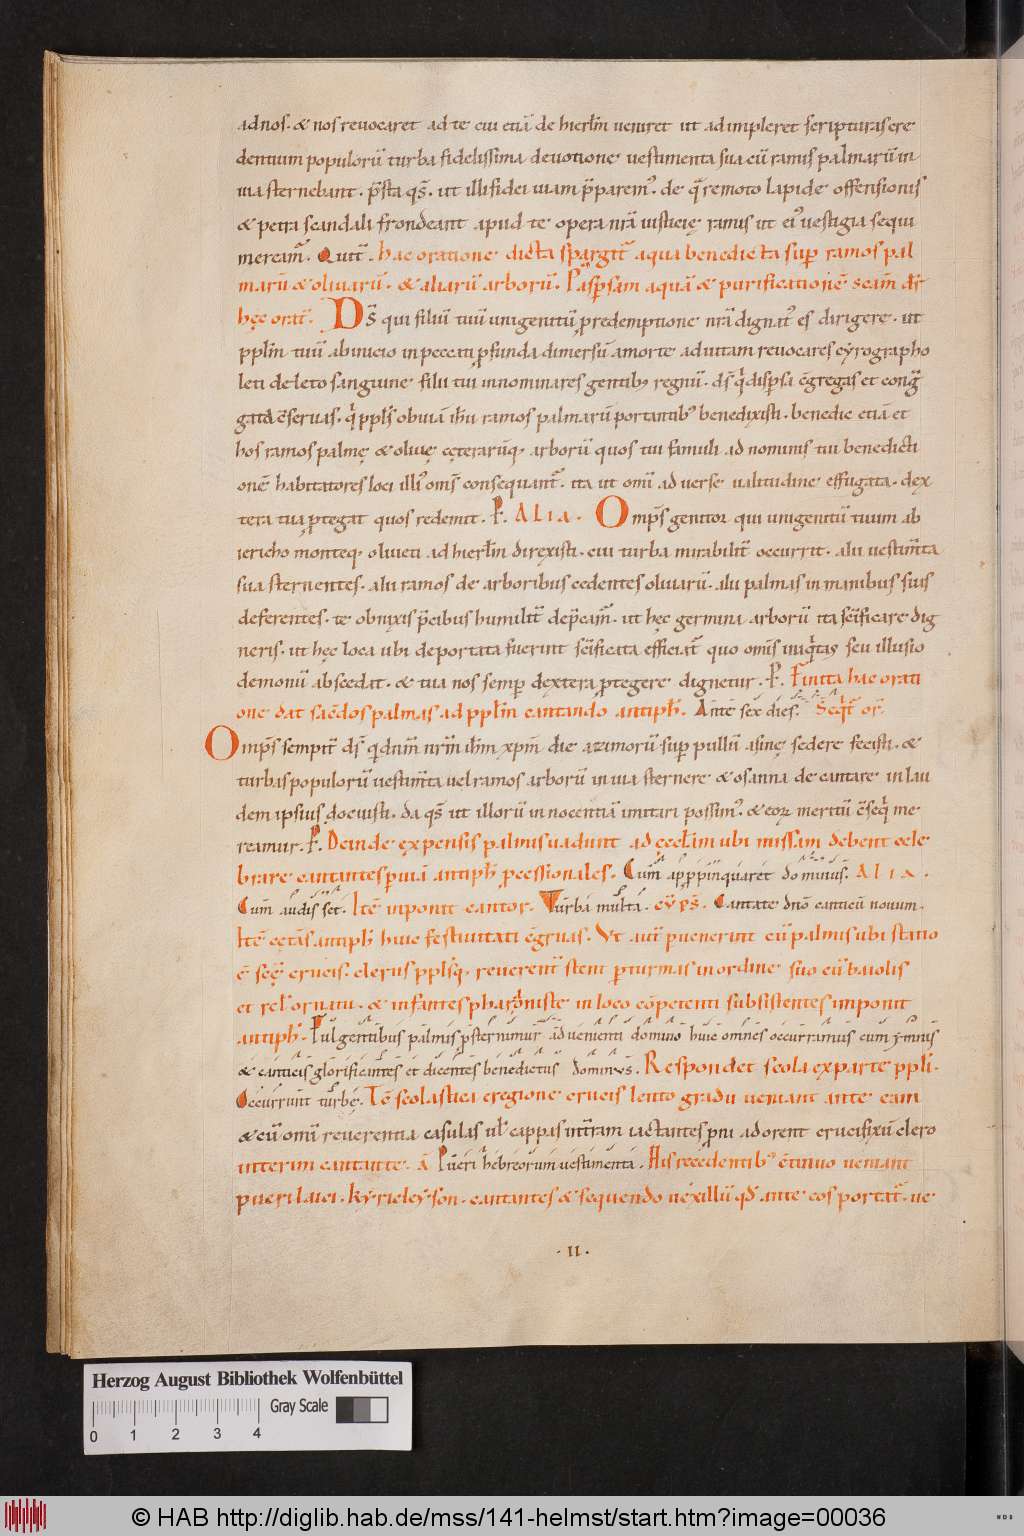 adnos. & nos revocaret ad te cui etiā de hierlm̄ veniret ut adimpleret scripturas cre
dentium populorū turba fidelissima devotione vestimenta sua cū ramis palmarū in
via sternebant. p̄sta qs̄. ut illi fidei viam p̄parem᷒. de q̄ remoto lapide offensionis
& petra scandali frondeant apud te opera nr̄a iusticię ramis ut ei᷒ vestigia sequi
meream̄. Quit̄. hac oratione dicta spargit̄ aqua benedicta sup̄ ramos pal
marū & olivarū. & aliarū arborū. Pasp̄sam aquā & purificationē scam̄ dr̄
hęc orat̄. Ds̄ qui filiū tuū unigenitū p redemptione nr̄a dignat᷒ es dirigere. ut
pplm̄ tuū ab inicio in peccati pfunda dimersū a morte ad vitam revocares cyrographo
leti deleto sanguine filii tui in nominares gentib; regnū. ds̄ q̄ dispsa c̄gregas et conḡ
gata c̄servas. q̄ pplis̄ obviā ihū ramos palmarū portantib᷒ benedixisti. benedic etiā et
hos ramos palmę & olivę cęterarūq; arborū quos tui famuli ad nominis tui benedicti
onē habitatores loci illi᷒ oms̄ consequant̄. ita ut omī adverse valitudine effugata. dex
tera tua ptegat quos redemit. P. ALIA. Omps̄ genitor qui unigenitū tuum ab
iericho monteq; oliveti ad hierlm̄ direxisti. cui turba mirabilit̄ occurrit. alii vestim̄ta
sua sternentes. alii ramos de arboribus cedentes olivarū. alii palmas in manibus suis
deferentes. te obnixis p̄cibus humilit̄ dep̄cam̄. ut hęc germina arborū ita scīficare dig
neris. ut hęc loca ubi deportata fuerint scīficata efficiat̄ quo omīs iniq̄tas seu illusio
demonū abscedat. & tua nos semp̄ dextera ptegere dignetur. P. Finita hac orati
one dat sacēdos palmas ad pplm̄ cantando antiph̄. Antē sex dies. Seq̄t or̄.
Omps̄ sempit̄ ds̄ q dnm̄ nrm̄ ihm̄ xpm̄ die azimorū sup pullū asinę sedere fecisti. &
turbas populorū vestim̄ta vel ramos arborū in via sternere & osanna decantare in lau
dem ipsius docuisti. da qs̄ ut illorū innocentiā imitari possim᷒. & eoꝝ meritū c̄seq̄ me
reamur. P. Deinde expensis palmis vadunt ad ęcclm̄ ubi missam debent cele
brare cantantes p viā antiph̄ pcessionales. Cum appropinquaret dominus. ALIA.
Cum audisset. Itē inponit cantor. Turba multa. Cantate dnō canticū novum.
Itē cętas antiph̄ huic festivitati c̄gruas. Ut aut̄ pvenerint cū palmis ubi statio
ē scę crucis. clerus pplsq; reverent̄ stent p turmas in ordine suo cū baiolis
et rel̄ ornatu. & infantes pharoniste in loco cōpetenti subsistentes imponit
antiph̄. Fulgentibus palmis psternimur advenienti domino huic omnes occurramus cum ymnis
& canticis glorificantes et dicentes benedictus dominus. Respondet scola ex parte ppli.
Occurrunt turbę. Tē scolastica e regione crucis lento gradu veniant ante eam
& cū omī reverentia casulas ul̄ cappas int̄ram iactantes pni adorent crucifixū clero
interim cantante. ā Pueri hebreorum vestimenta. His recedentib᷒ c̄tinuo veniant
pueri laici. kyrieleyson. cantantes & sequendo vexillū qd̄ ante eos portat̄. ve
.II.
Herzog August Bibliothek Wolfenbüttel
Gray Scale
0 1 2 3 4
© HAB http://diglib.hab.de/mss/141-helmst/start.htm?image=00036